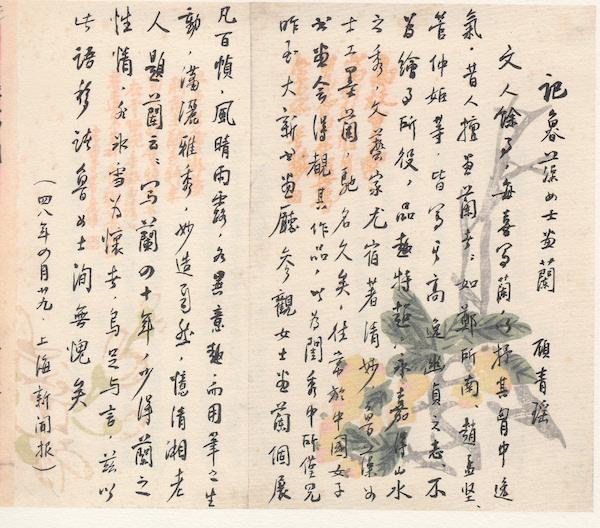 記魯藻女士畫蘭　顧青瑤
文人餘事，每喜寫蘭，以抒其胸中逸
氣。昔人擅畫蘭者：如鄭所南、趙孟堅、
管仲姬等，皆寫其高逸幽貞之志，不
為繪事所役，品趣特超，永嘉得山水
之秀，文藝家尤宿著清妙，魯藻女
士工墨蘭，馳名久矣，往常於中國女子
書畫會得觀其作品，以為閨秀中所僅見
昨至大新書畫廳參觀女士畫蘭個展
凡百幀，風晴雨露，各異意趣，而用筆之生
動，瀟灑雅秀，妙造自然，憶清湘老
人題蘭云：寫蘭四十年，少得蘭之
性情，非冰雪為懷者，烏足與言，茲以
此語移魯女士洵無愧矣
（四八年四月廿九．上海新聞報）